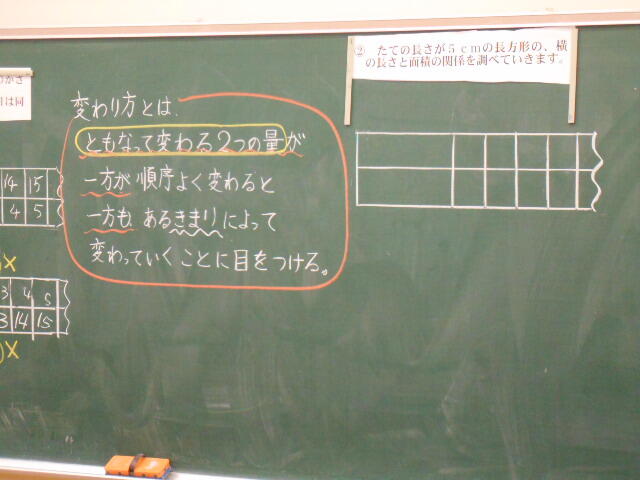 変わり方とは
ともなって変わる2つの量が
一方が順序よく変わると
一方も、あるきまりによって
変わっていくことに目をつける。
② たての長さが5cmの長方形の、横
の長さと面積の関係を調べていきます。
は同
14 15
4 5
3 4 5
3 14 15
×
×